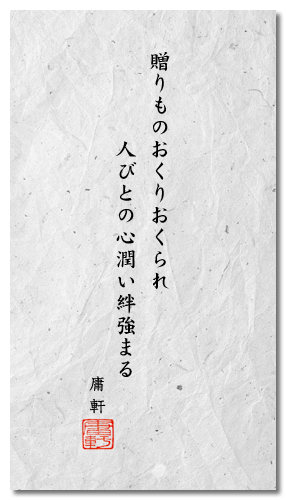 贈りものおくりおくられ
人びとの心潤い絆強まる
庸軒
庸軒